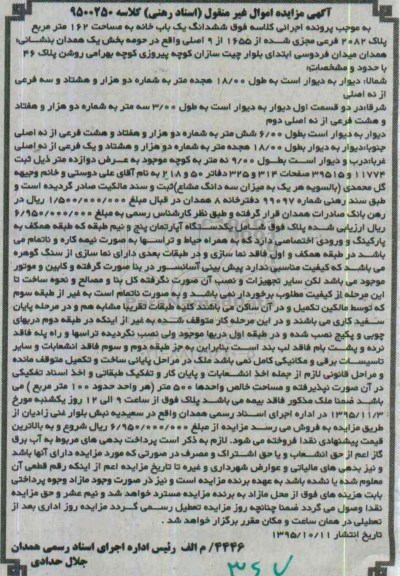 آگهی مزایده اموال غیر منقول (اسناد رهنی) کلاسه ۹۵۰۰۲۵۰
به موجب پرونده اجرائی کلاسه فوق ششدانگ یک باب خانه به مساحت ۱۶۲ متر مربع
پلاک ۲۰۸۲ فرعی مجزی شده از ۱۶۵۵ از ۹ اصلی واقع در حومه بخش یک همدان بنشانی:
همدان میدان فردوسی ابتدای بلوار چیت سازان کوچه پیروزی کوچه بهرامی روشن پلاک ۴۶
با حدود و مشخصات:
شمالا: دیوار به دیوار است به طول ۱۸/۰۰ هجده متر به شماره دو هزار و هفتاد و سه فرعی از نه اصلی
شرقا:در دو قسمت اول دیوار به دیوار است به طول ۳/۰۰ سه متر به شماره دو هزار و هفتاد و هشت فرعی از نه اصلی دوم
دیوار به دیوار است بطول ۶/۰۰ شش متر به شماره دو هزار و هفتاد و هشت فرعی از نه اصلی
جنوبا:دیوار به دیوار است بطول ۱۸/۰۰ هجده متر به شماره دو هزار و هشتاد و یک فرعی از نه اصلی
غربا:درب و دیوار است بطول ۹/۰۰ نه متر به کوچه موجود به عرض دوازده متر ذیل ثبت
۱۱۷۷۴ و ۳۹۵۱۵ صفحات ۳۱۴ و ۳۲۵ دفاتر ۵۰ و ۲۱۸ به نام آقای علی دوستی و خانم وجیهه
گل محمدی (بالسویه هر یک به میزان سه دانگ مشاع)ثبت و سند مالکیت صادر گردیده است و
طبق سند رهنی شماره ۹۹۰۹۷ دفترخانه ۸ همدان در قبال مبلغ ۱/۵۰۰/۰۰۰/۰۰۰ ریال در
رهن بانک صادرات همدان قرار گرفته و طبق نظر کارشناس رسمی به مبلغ ۶/۹۵۰/۰۰۰/۰۰۰
ریال ارزیابی شده پلاک فوق شامل یکدستگاه آپارتمان پنج و نیم طبقه که طبقه همکف به
پارکینگ و ورودی اختصاصی دارد که به همراه حیاط و تراسها به صورت نیمه کاره و ناتمام می
باشد در طبقه همکف و اول فاقد نما سازی و در طبقات بعدی دارای نما سازی از سنگ گوهره
می باشد که کیفیت مناسبی ندارد پیش بینی آسانسور در بنا صورت گرفته و کابین و موتور
موجود می باشد لکن سایر تجهیزات و نصب آن صورت نگرفته کل بنا و مصالح و نحوه ساخت تا
این مرحله از کیفیت مطلوب برخوردار نمی باشد و به صورت ناتمام است به غیر از طبقه سوم
که توسط مالکین تکمیل و در آن ساکن می باشند کلیه طبقات تقریبا مشابه هم و در مرحله پایان
سفید کاری می باشند و در این مرحله کار متوقف شده به غیر از اینکه در طبقه دوم دربهای
چوبی و پکیج نصب شده و در طبقه اول دربها موجود ولی نصب نگردیده تراسها و راه پله فاقد
نرده و پشت بام فاقد لب بند است بنابراین به جز طبقه دوم و سوم فاقد انشعابات و سایر
تاسیسات برقی و مکانیکی کامل نمی باشد ملک در مراحل پایانی ساخت و تکمیل متوقف مانده
و مراحل قانونی لازم از جمله اخذ انشعابات و پایان کار و تفکیک طبقاتی و اخذ اسناد تفکیکی
در آن صورت نپذیرفته و مساحت خالص واحدها ۵۰۰ متر (هر واحد حدود ۱۰۰ متر مربع ) می
باشد ضمنا ملک مذکور فاقد بیمه می باشد پلاک فوق از ساعت ۹ الی ۱۲ روز یکشنبه مورخ
۱۳۹۵/۱۱/۳ در اداره اجرای اسناد رسمی همدان واقع در سعیدیه نبش بلوار غنی زادیان از
طریق مزایده به فروش می رسد مزایده از مبلغ ۶/۹۵۰/۰۰۰/۰۰۰ ریال شروع و به بالاترین
قیمت پیشنهادی نقدا فروخته می شود. لازم به ذکر است پرداخت بدهی های مربوط به آب برق
گاز اعم از حق انشعاب و یا حق اشتراک و مصرف در صورتی که مورد مزایده دارای آنها باشد
و نیز بدهی های مالیاتی و عوارض شهرداری و غیره تا تاریخ مزایده اعم از اینکه رقم قطعی آن
معلوم شده یا نشده باشد به عهده برنده مزایده است و نیز در صورت وجود مازاد وجوه پرداختی
بابت هزینه های فوق از محل مازاد به برنده مزایده مسترد خواهد شد و نیم عشر و حق مزایده
نقدا وصول می گردد ضمنا چنانچه روز مزایده تعطیل رسمی گردد مزایده روز اداری بعد از
تعطیلی در همان ساعت و مکان مقرر برگزار خواهد شد .
تاریخ انتشار ۱۳۹۵/۱۰/۱۱
۴۴۴۶/ م الف رئیس اداره اجرای اسناد رسمی همدان
جلال حدادی
۳۶۷